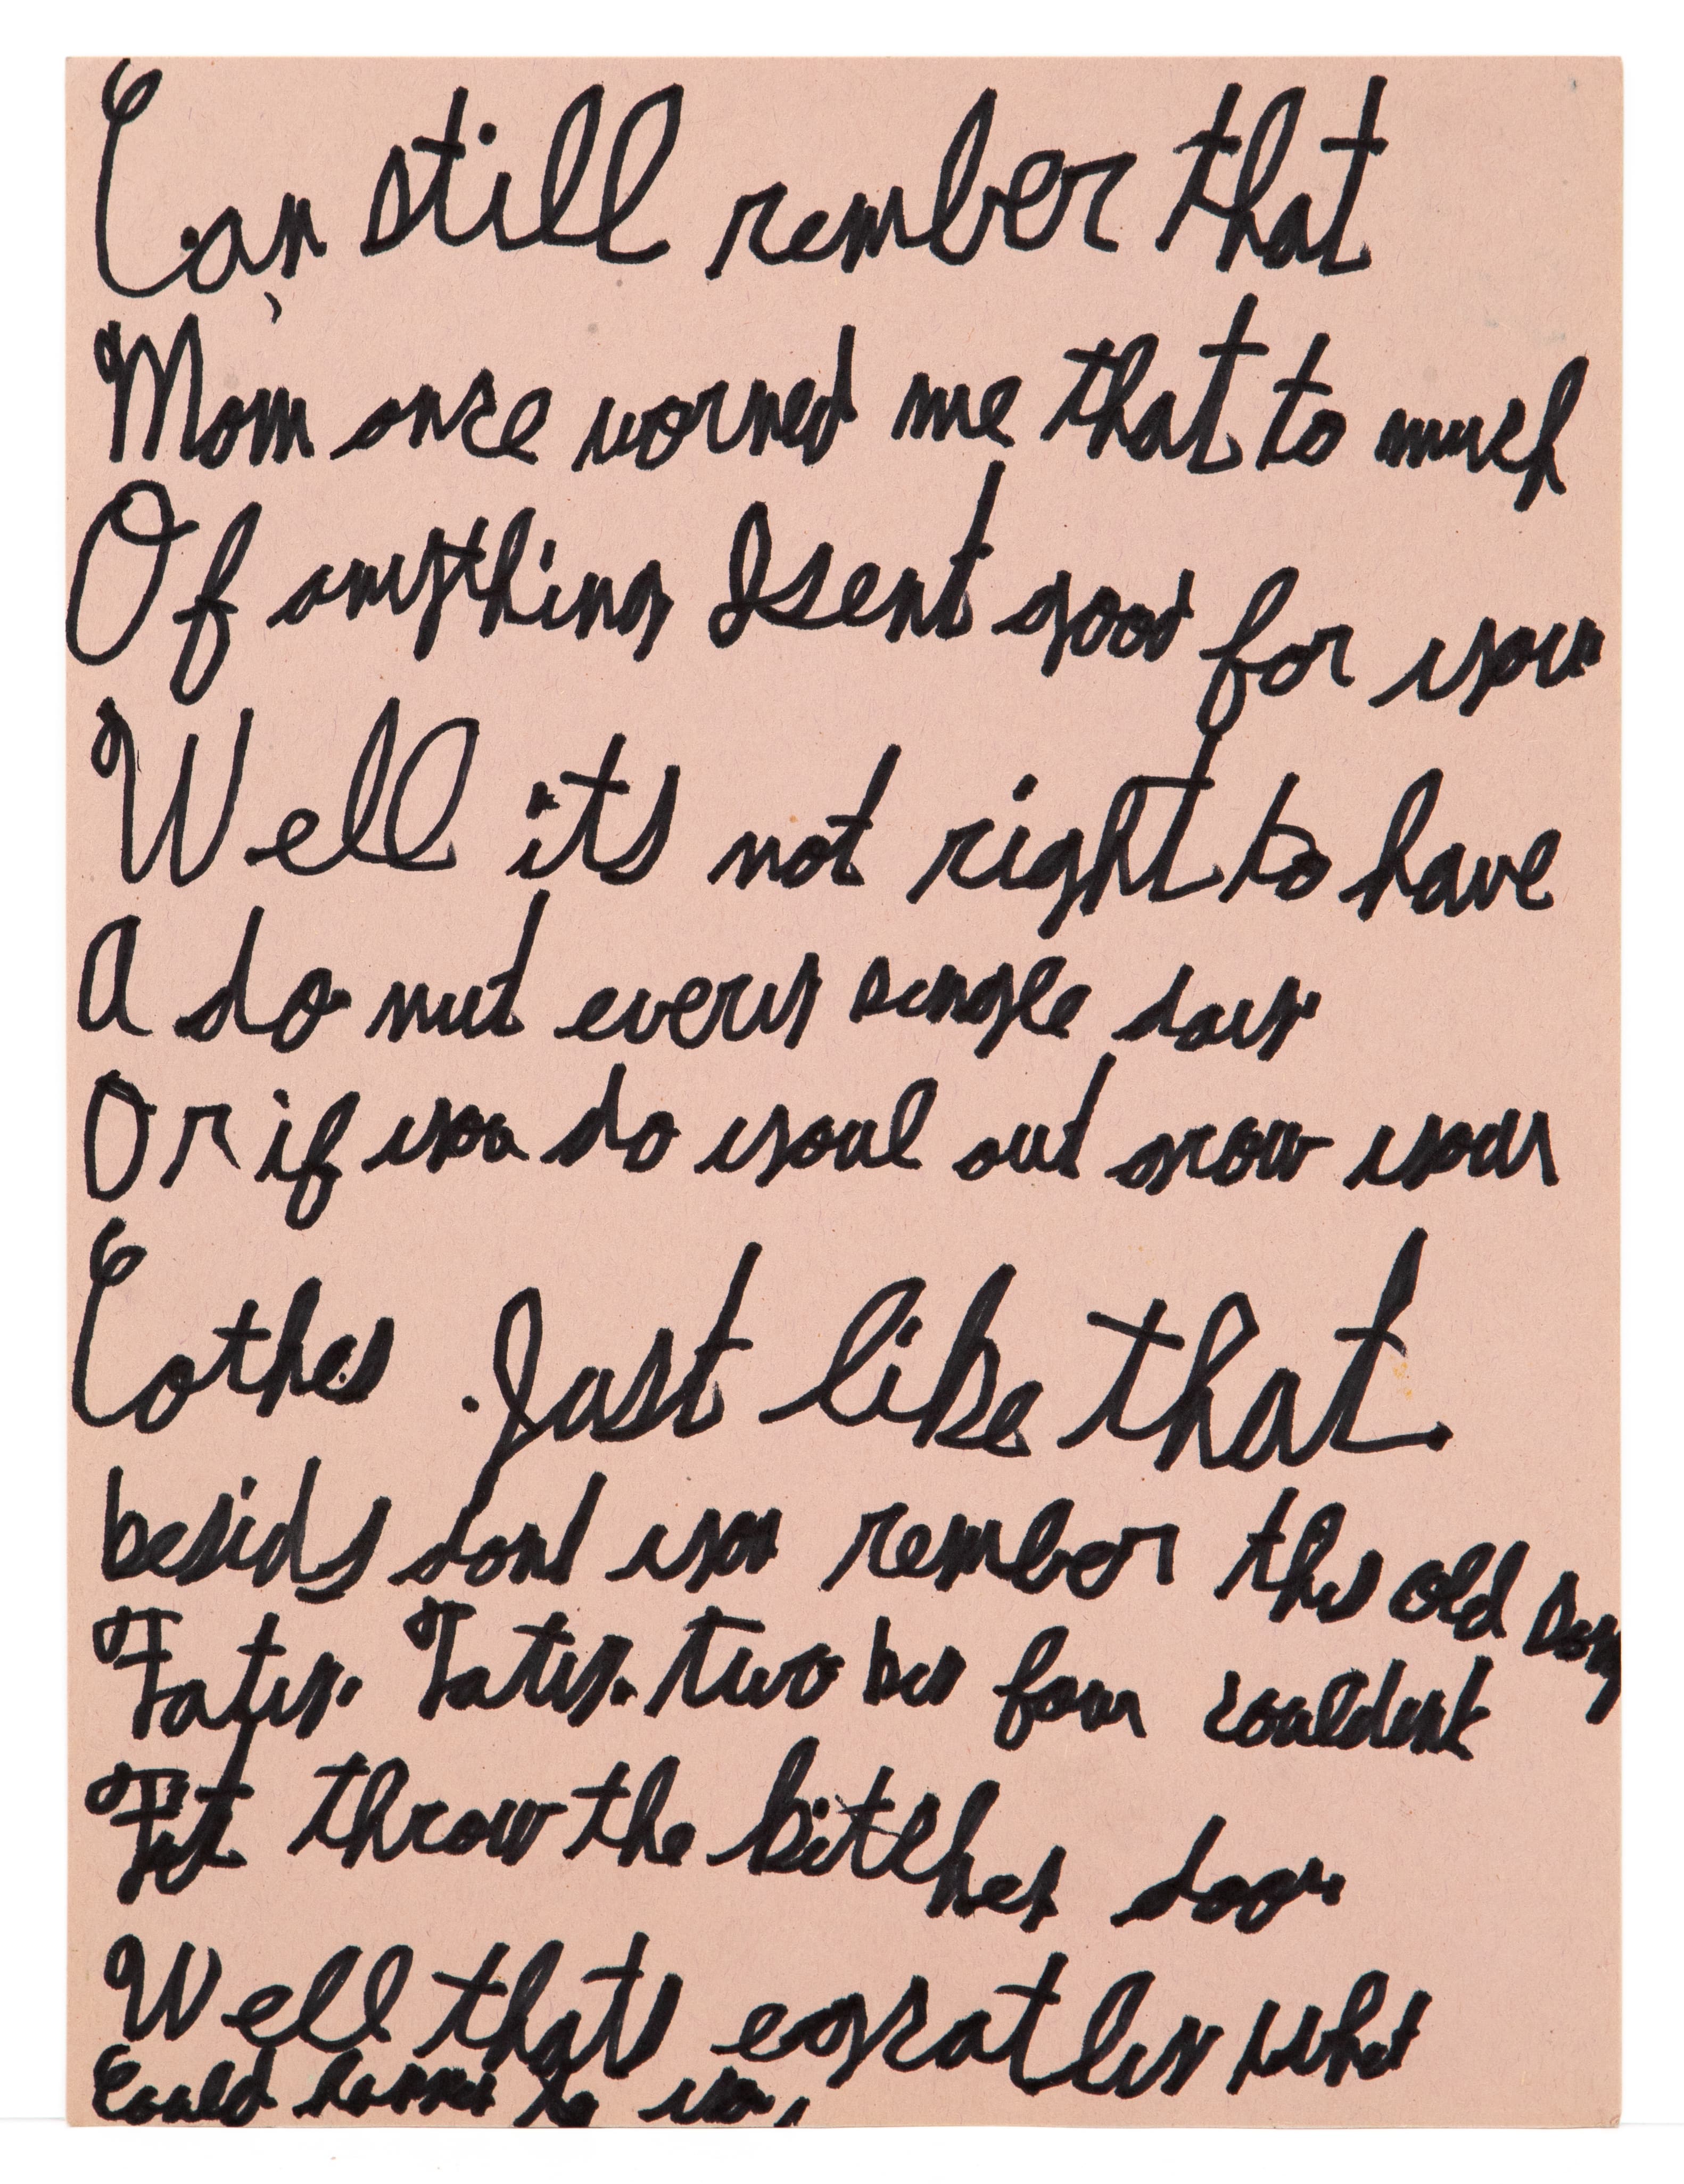 Can still rember that
Mom onse worned me that to much
Of anything Isent good for you
Well its not right to have
A do nut every single day
Or if you do youl out grow your
Cothes . Just like that.
besids dont you rember this old song
Faty. Faty. two by four couldent
Fit throw the bitthes door
Well thats egsatley whet
Could happen to you,